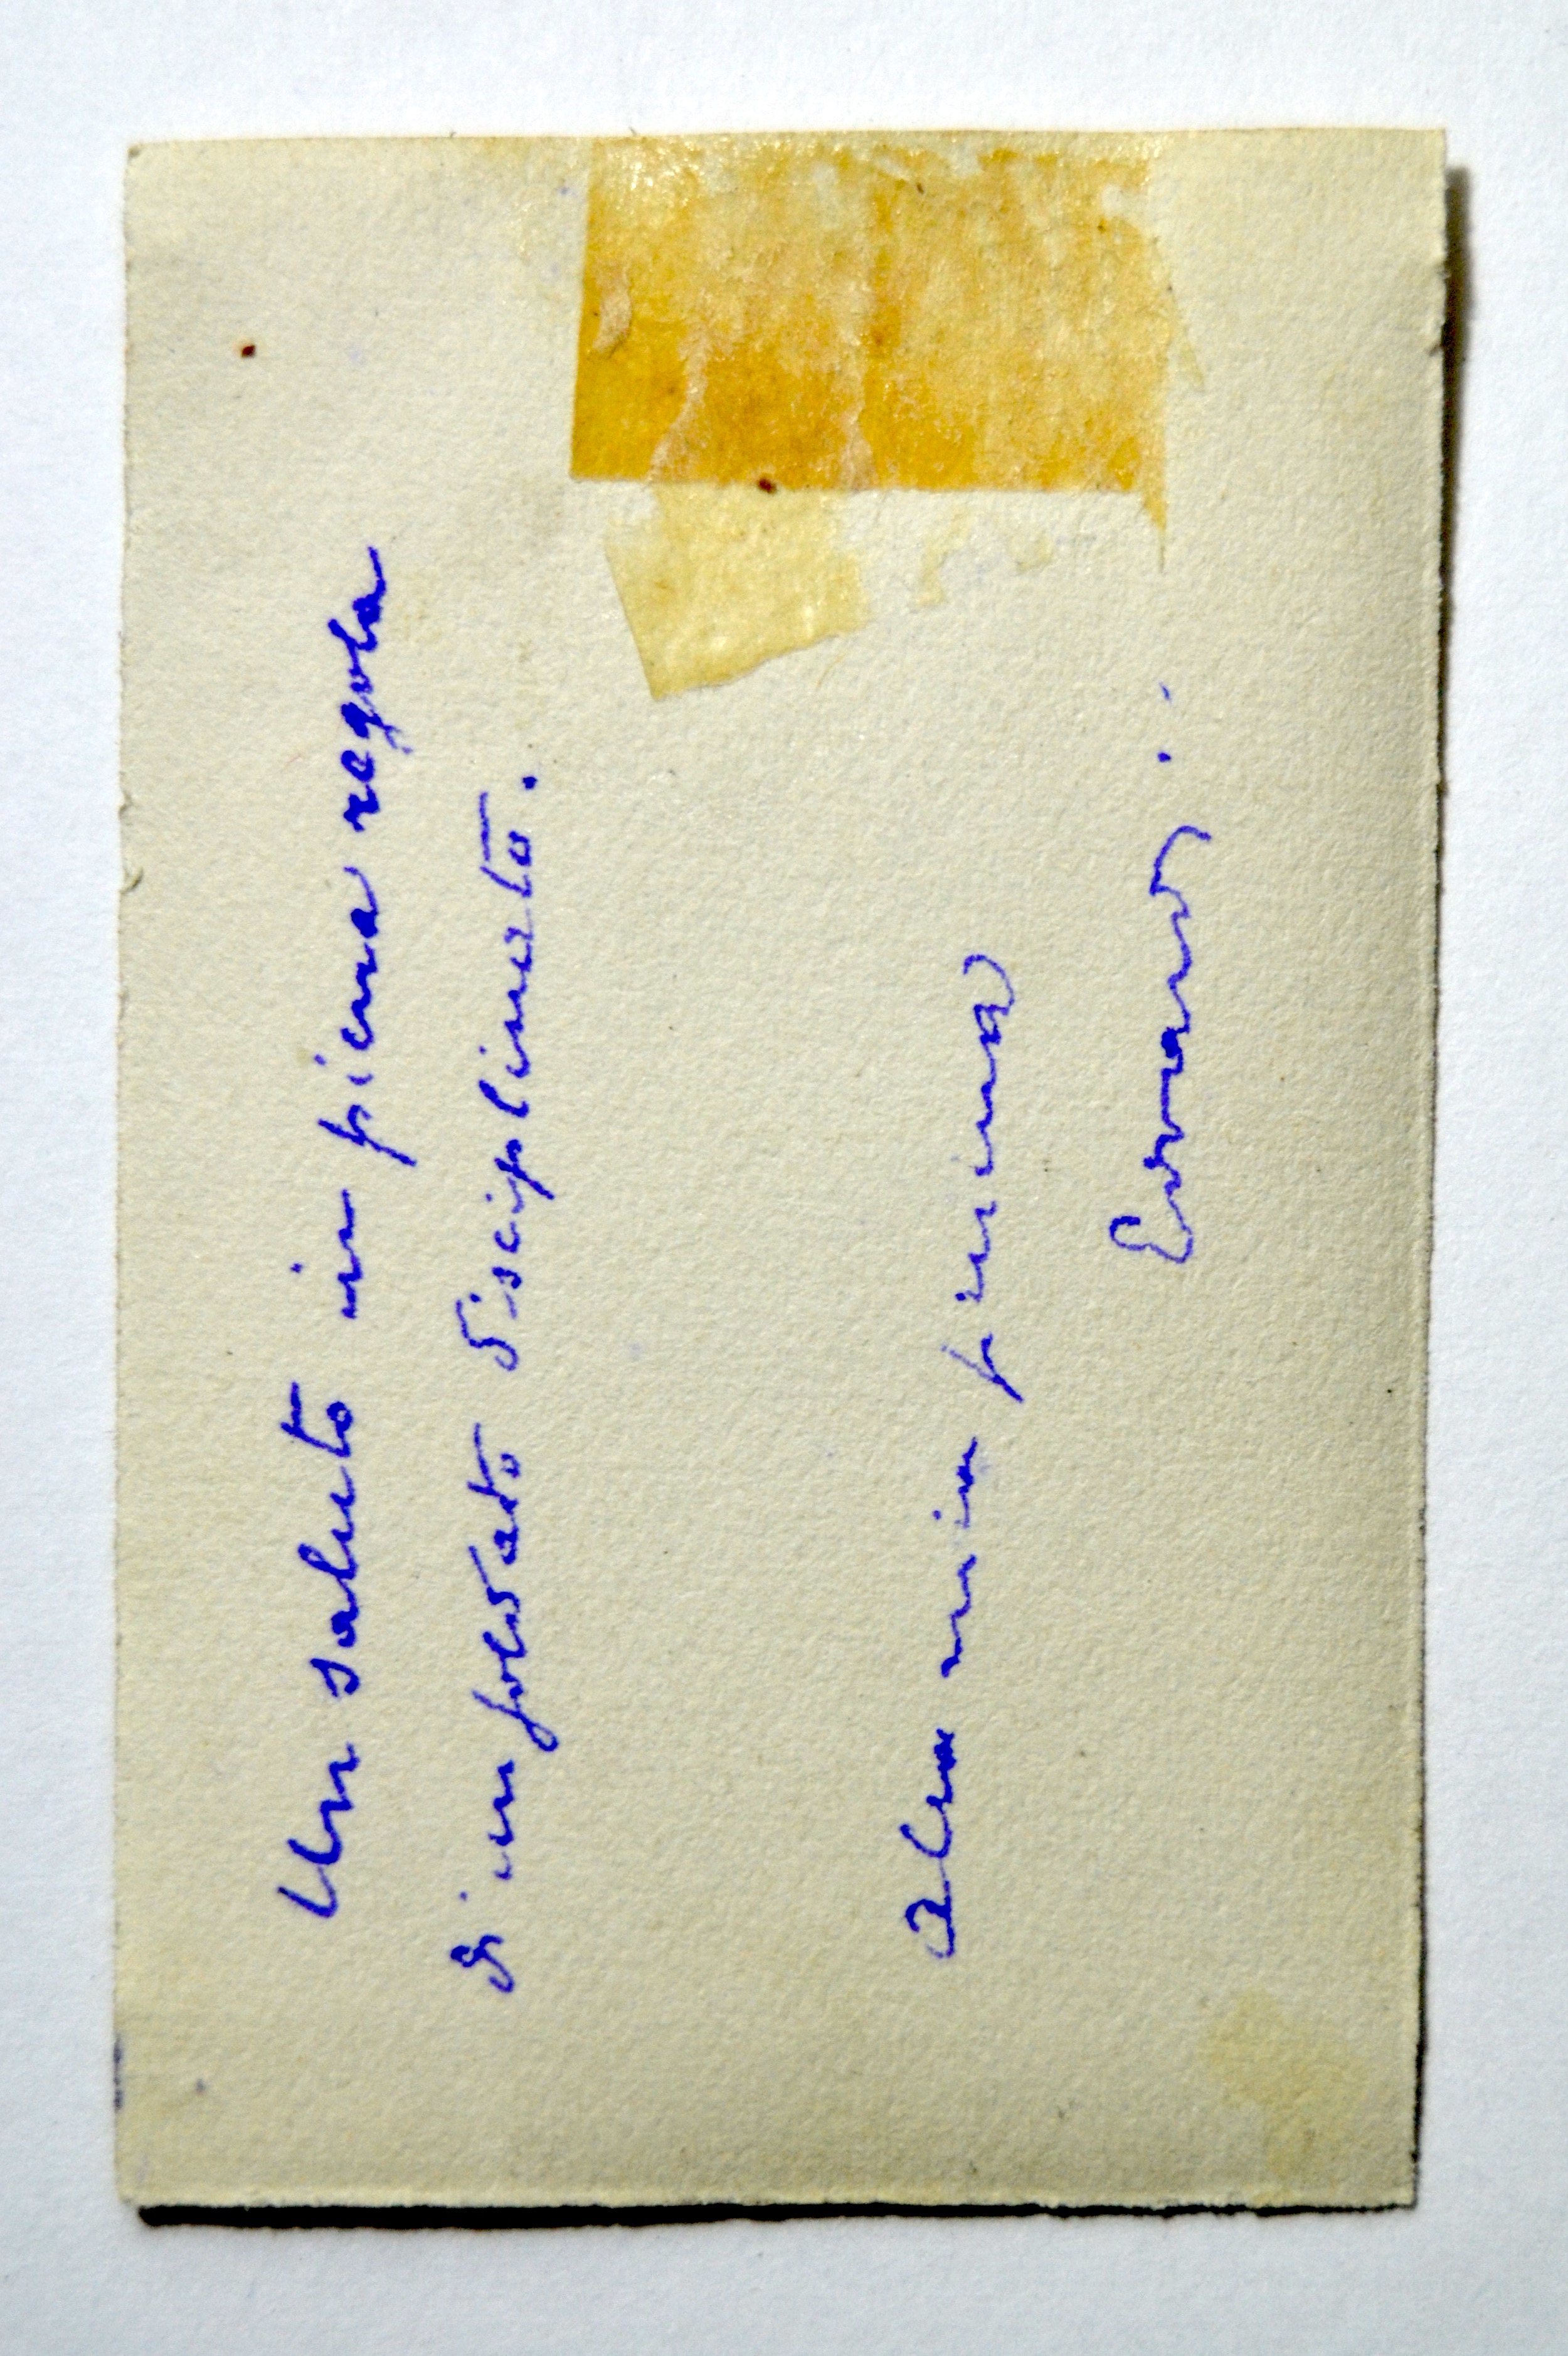 Un saluto in piena regola
di un soldato disciplinato.
alla mia piccina